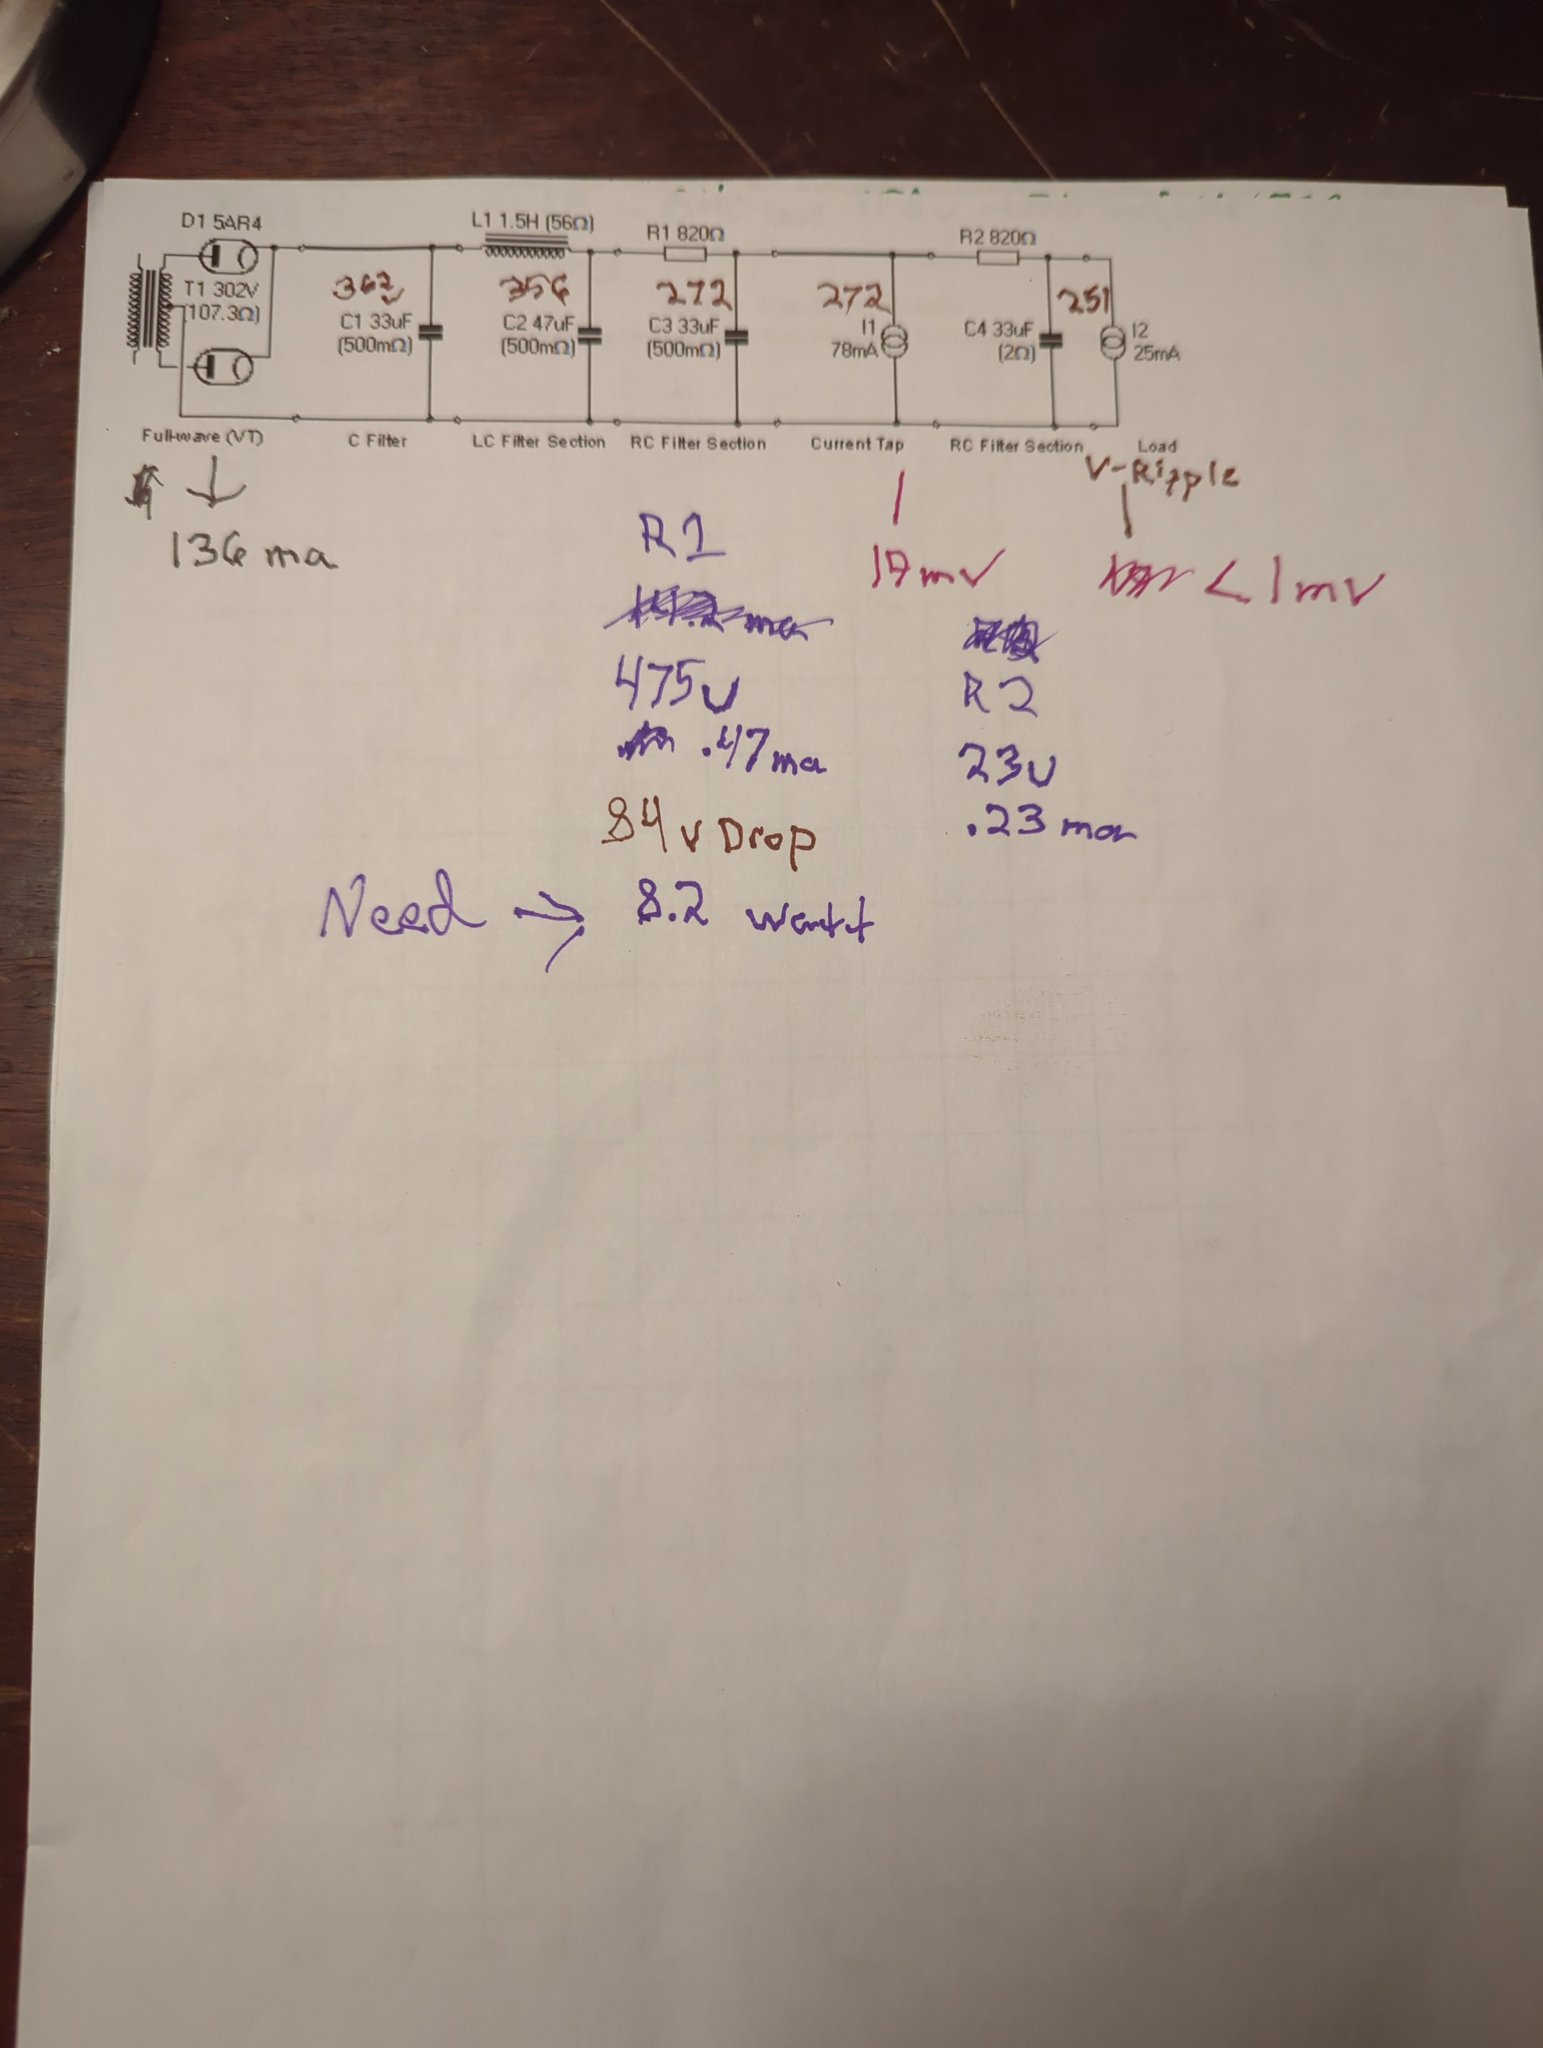 D1 5AR4
L1 1.5H (56Ω)
R1 820Ω
R2 820Ω
T1 302V
(107.3Ω)
362v
356
272
272
251
C1 33uF
(500mΩ)
C2 47uF
(500mΩ)
C3 33uF
(500mΩ)
I1
78mA
C4 33uF
(2Ω)
I2
25mA
Full-wave (VT)
C Filter
LC Filter Section
RC Filter Section
Current Tap
RC Filter Section
Load
V-Ripple
136 ma
17mV
< 1mV
R1
475v
.47ma
84v Drop
R2
23v
.23 ma
Need → 8.2 watt